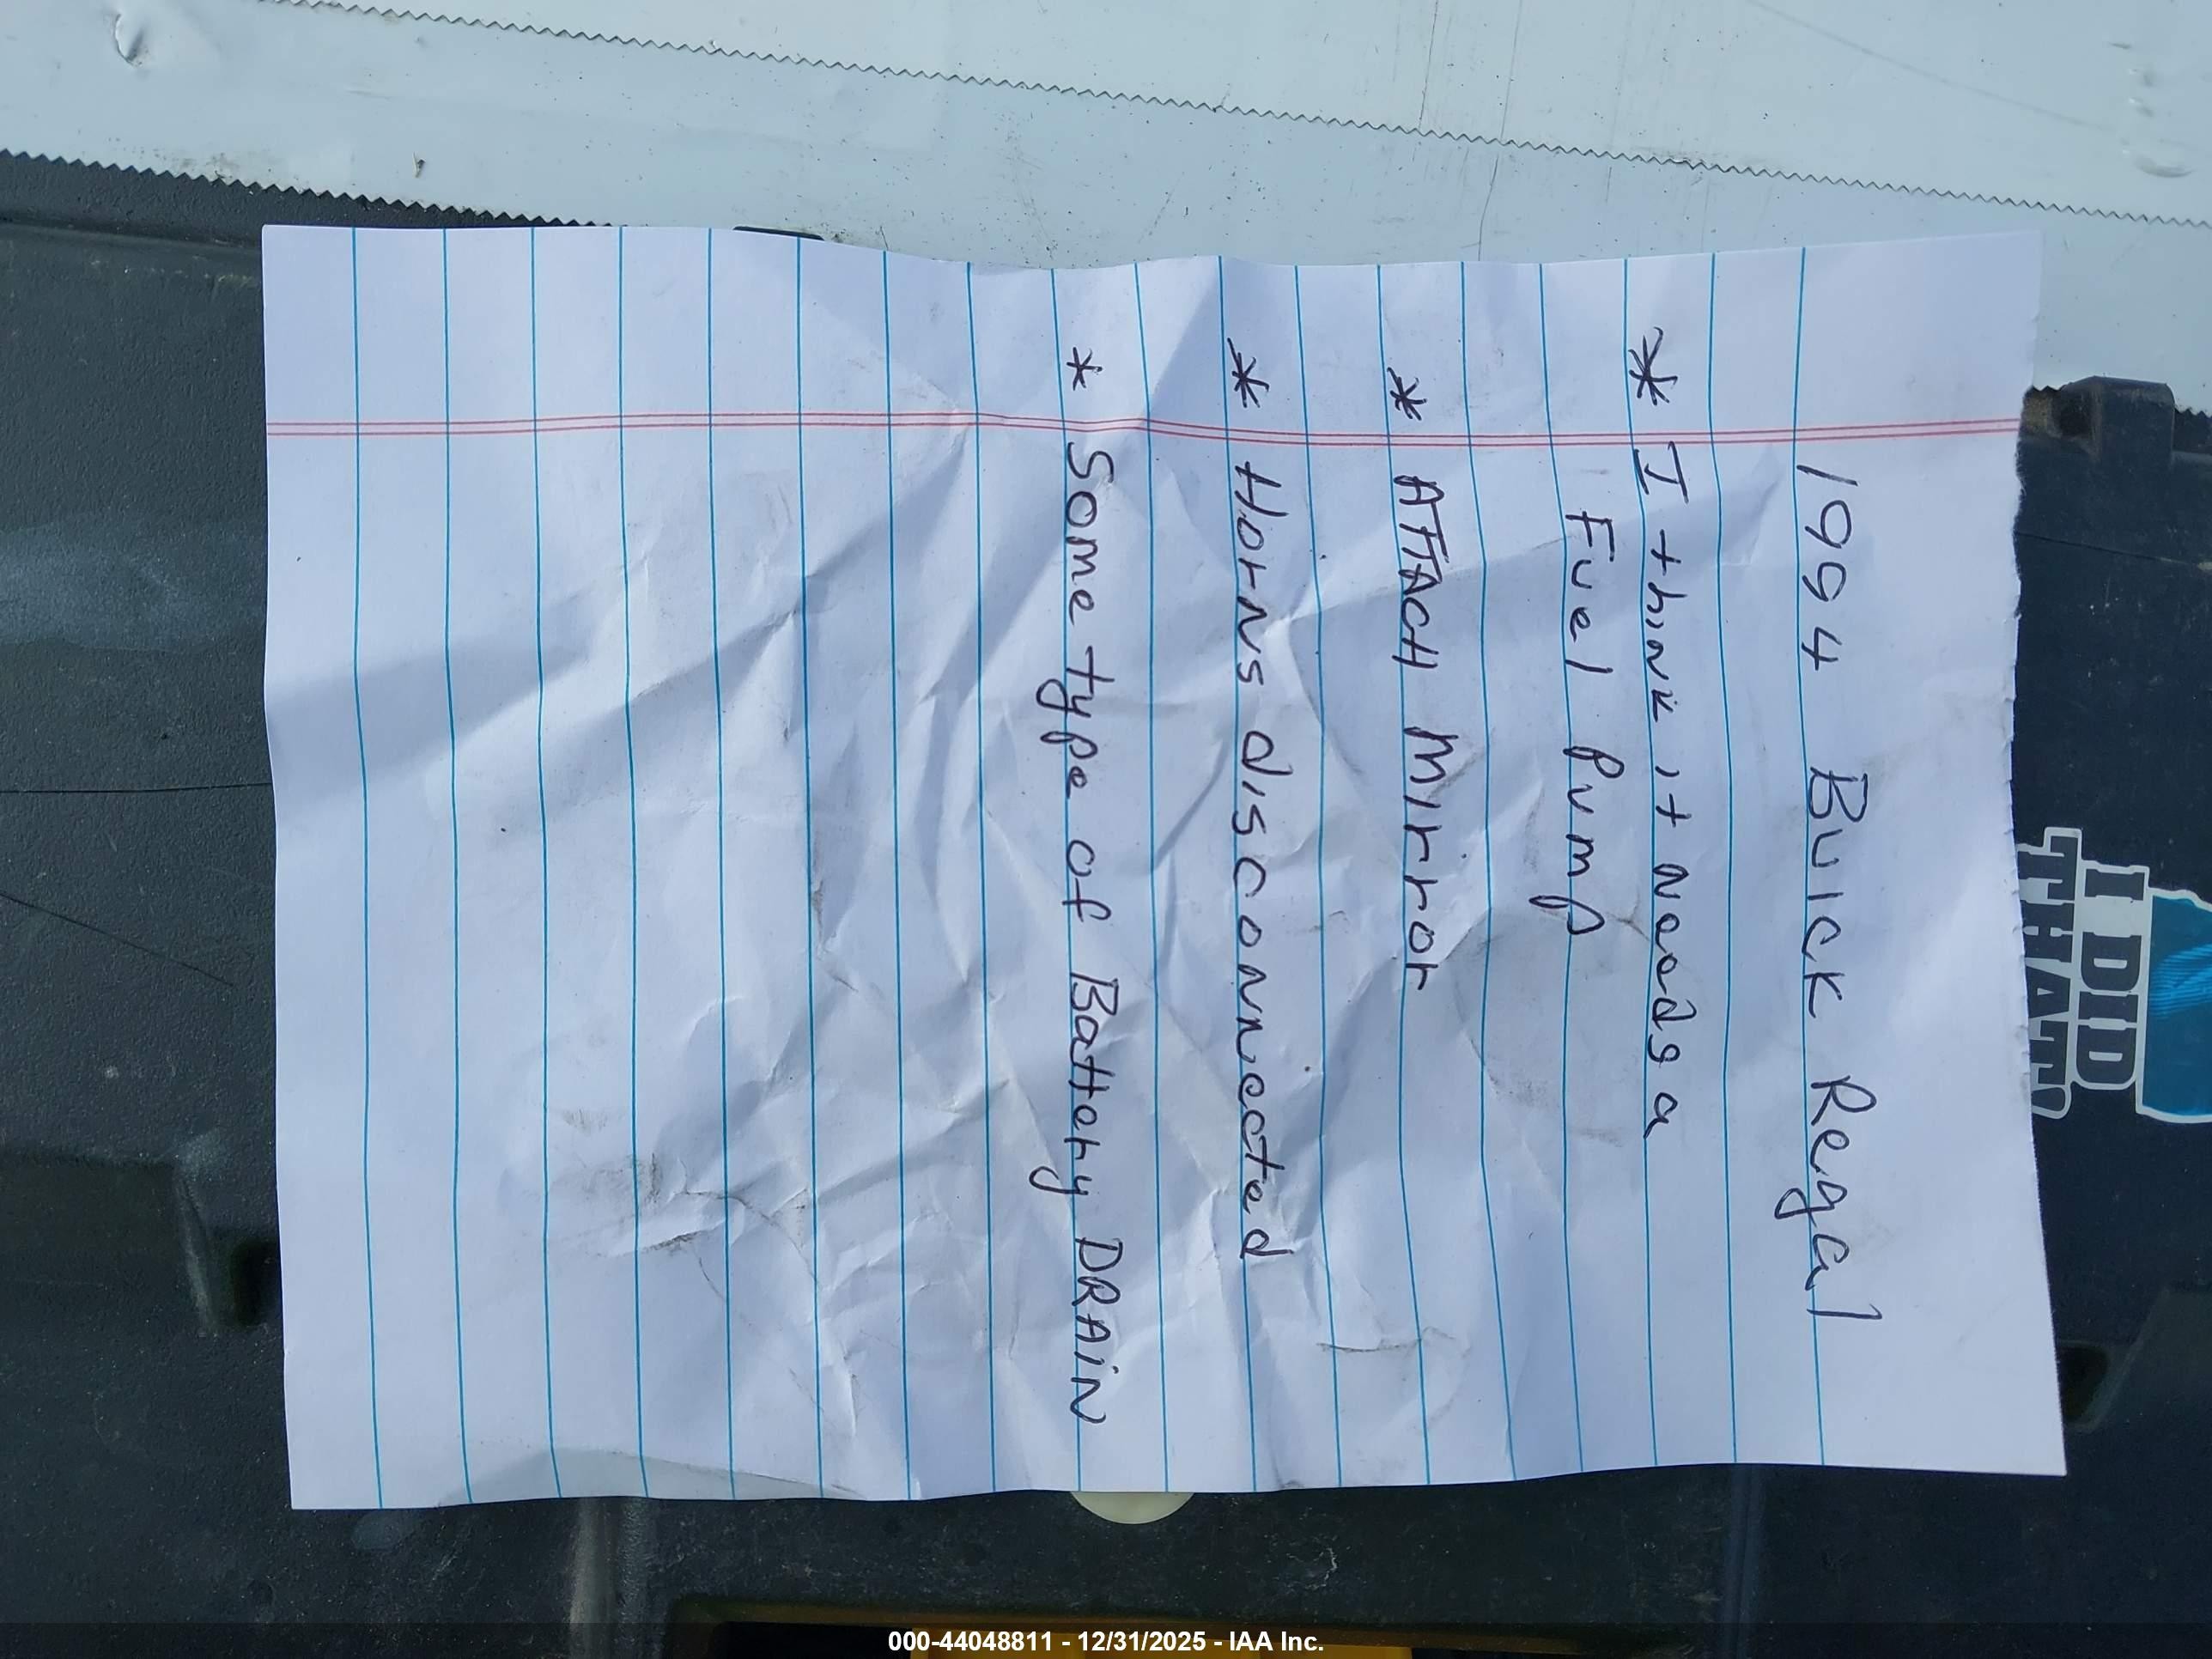 1994 Buick Regal
* I think it needs a
Fuel Pump
* ATTACH Mirror
* Horns disconnected
* Some type of Battery DRAiN
I DID
THAT!
000-44048811 - 12/31/2025 - IAA Inc.